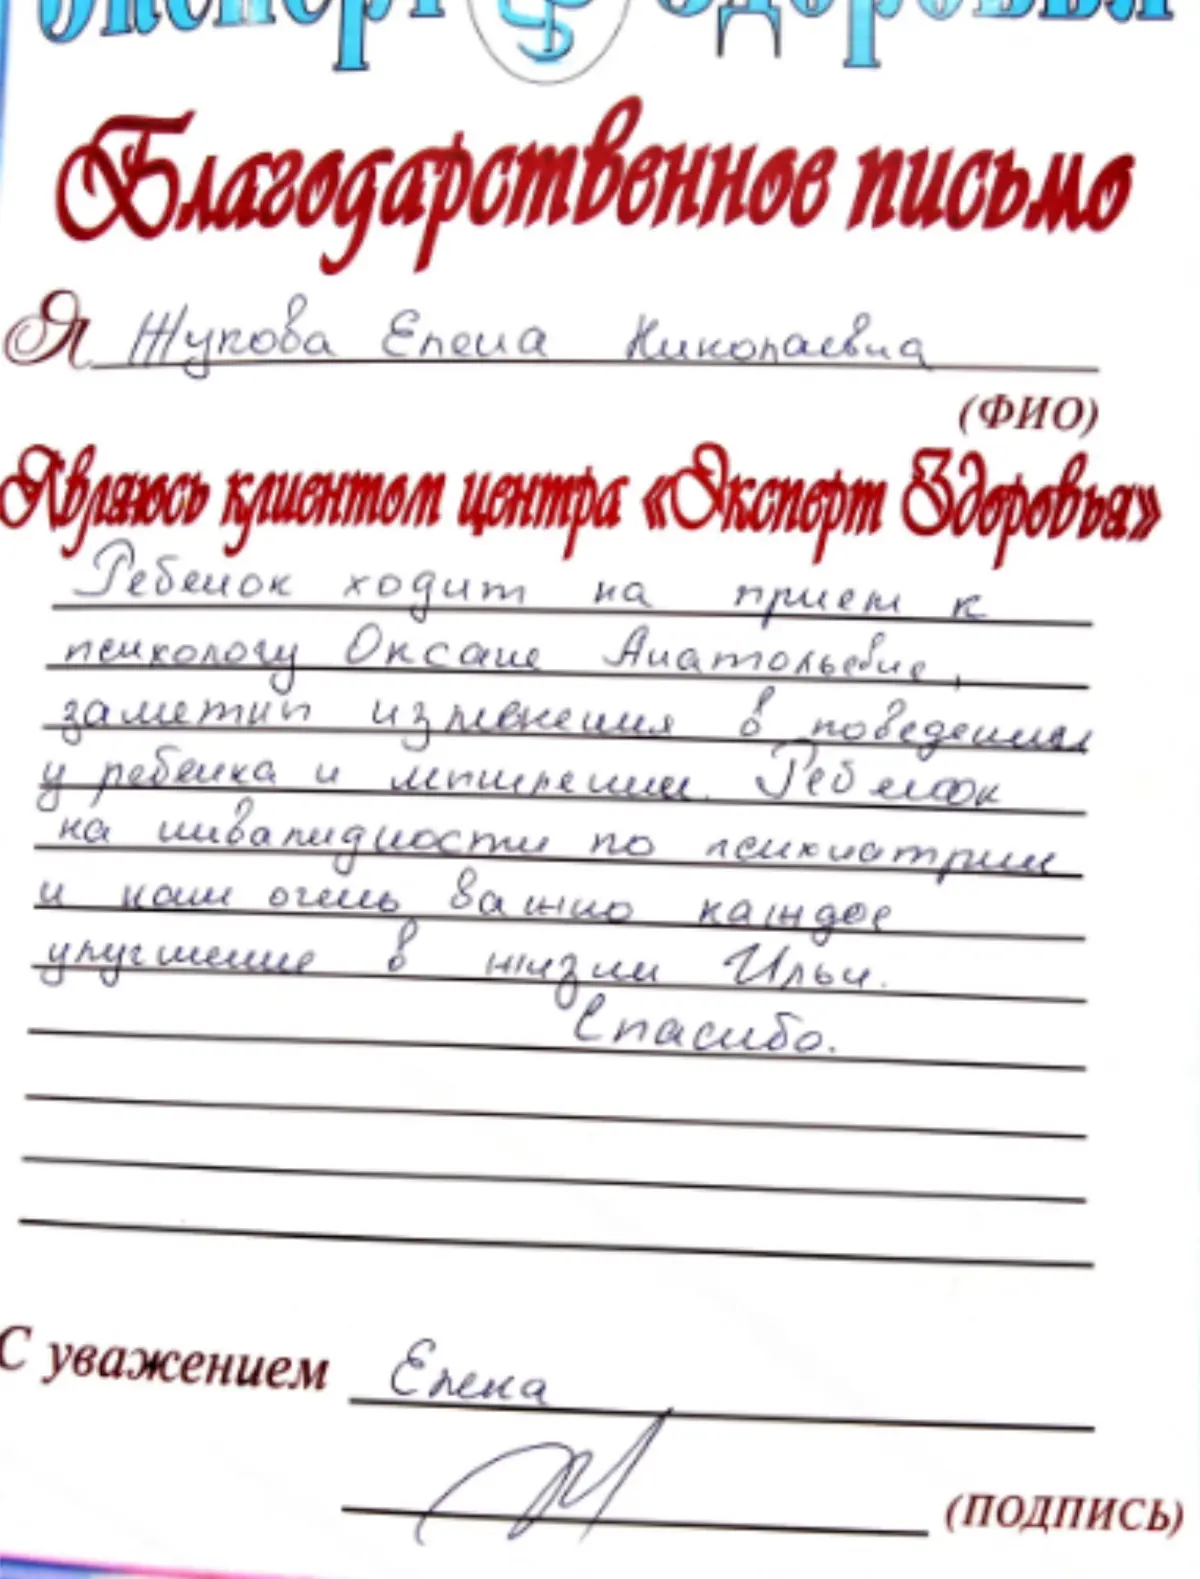 Эксперт Здоровья
Благодарственное письмо
Я Жупова Елена Николаевна
(ФИО)
Являюсь клиентом центра «Эксперт Здоровья»
Ребенок ходит на прием к
психологу Оксане Анатольевне,
заметил изменения в поведении
у ребенка и мышлении. Ребенок
на инвалидности по психиатрии
и нам очень важно каждое
улучшение в жизни Ильи.
Спасибо.
С уважением Елена
(ПОДПИСЬ)